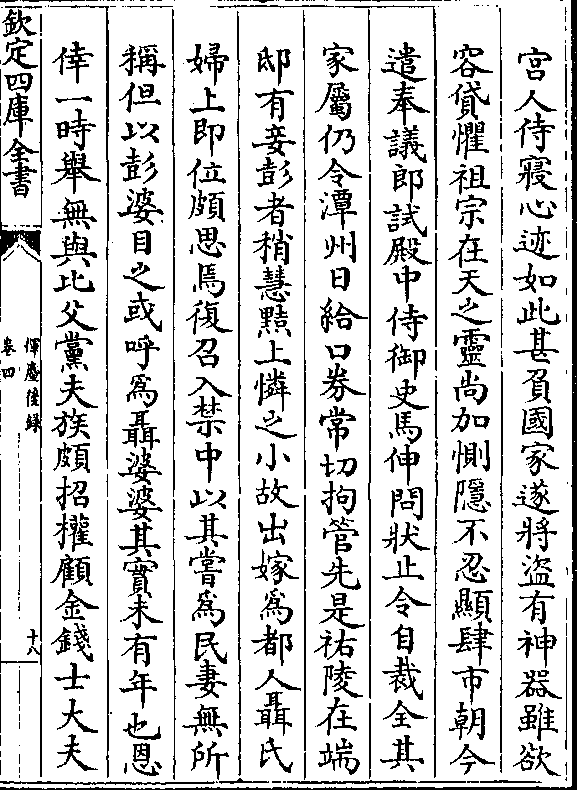 宫人侍寢心迹如此甚負國家遂將盜有神器雖欲
容貸懼祖宗在天之靈尚加惻隠不忍顯肆市朝今
遣奉議郎試殿中侍御史馬伸問狀止令自裁全其
家屬仍令潭州日給口券常切拘管先是祐陵在端
邸有妾彭者稍慧黠上憐之小故出嫁爲都人聶氏
婦上即位頗思焉復召入禁中以其嘗爲民妻無所
稱但以彭婆目之或呼爲聶婆婆其實未有年也恩
倖一時舉無與比父黨夫族頗招權顧金錢士大夫
欽定四庫全書
揮麈後録
卷四
十八